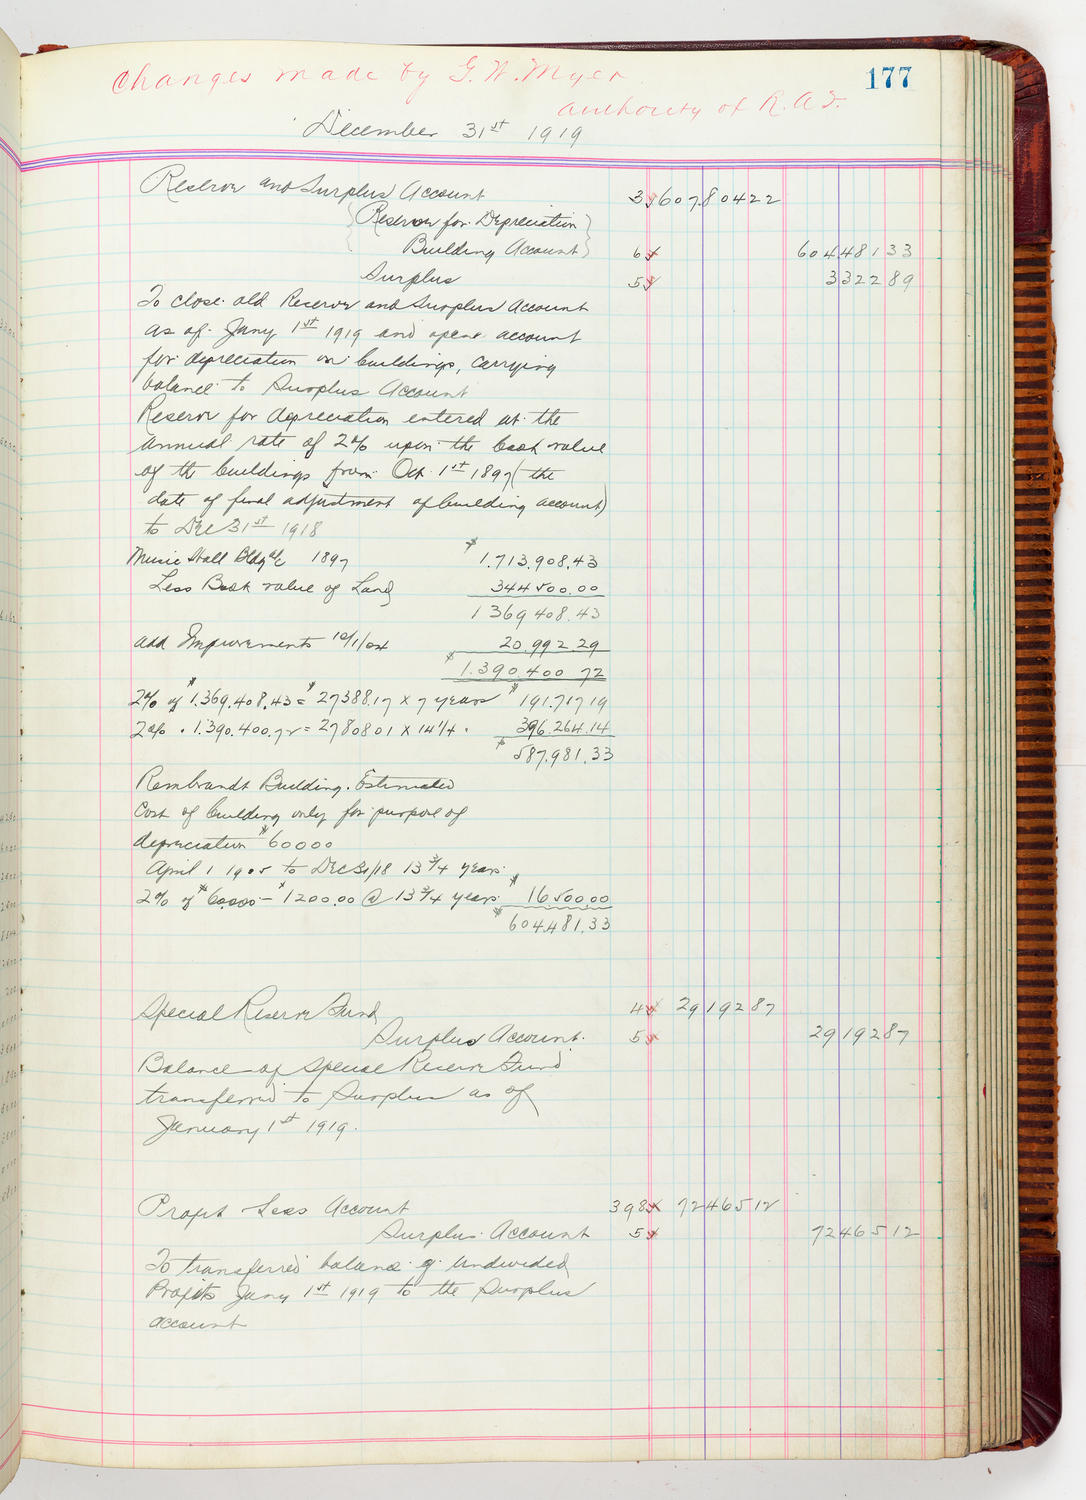 Changes made by G. W. Myer
177
authority of R. A. S.
December 31st 1919
Reserve and Surplus Account 3 60780422
{Reserve for Depreciation
Building Account} 6 60448133
Surplus 5 332289
To close old Reserve and Surplus Account
as of Jany 1st 1919 and open account
for depreciation on buildings, carrying
balance to Surplus Account
Reserve for depreciation entered at the
annual rate of 2% upon the book value
of the buildings from Oct. 1st 1897 (the
date of final adjustment of building account)
to Dec 31st 1918
Music Hall Bldg a/c 1897 $1.713.908.43
Less Book value of Land 344500.00
1369408.43
add Improvements 10/1/04 20.992 29
$1.390.400 72
2% of $1.369.408.43 = $27388.17 x 7 years $191.717 19
2% " 1.390.400.72 = 27808 01 x 14 1/4 " 396.264.14
$587.981.33
Rembrandt Building. Estimated
Cost of building only for purpose of
depreciation $60000
April 1 1905 to Dec 31/18 13 3/4 years
2% of $60.000 - $1200.00 @ 13 3/4 years $16500.00
$604.481.33
Special Reserve Fund 4 2919287
Surplus Account. 5 2919287
Balance of Special Reserve Fund
transferred to Surplus as of
January 1st 1919.
Profit & Loss Account 398 7246512
Surplus Account 5 7246512
To transferred balance of undivided
Profits Jany 1st 1919 to the Surplus
account